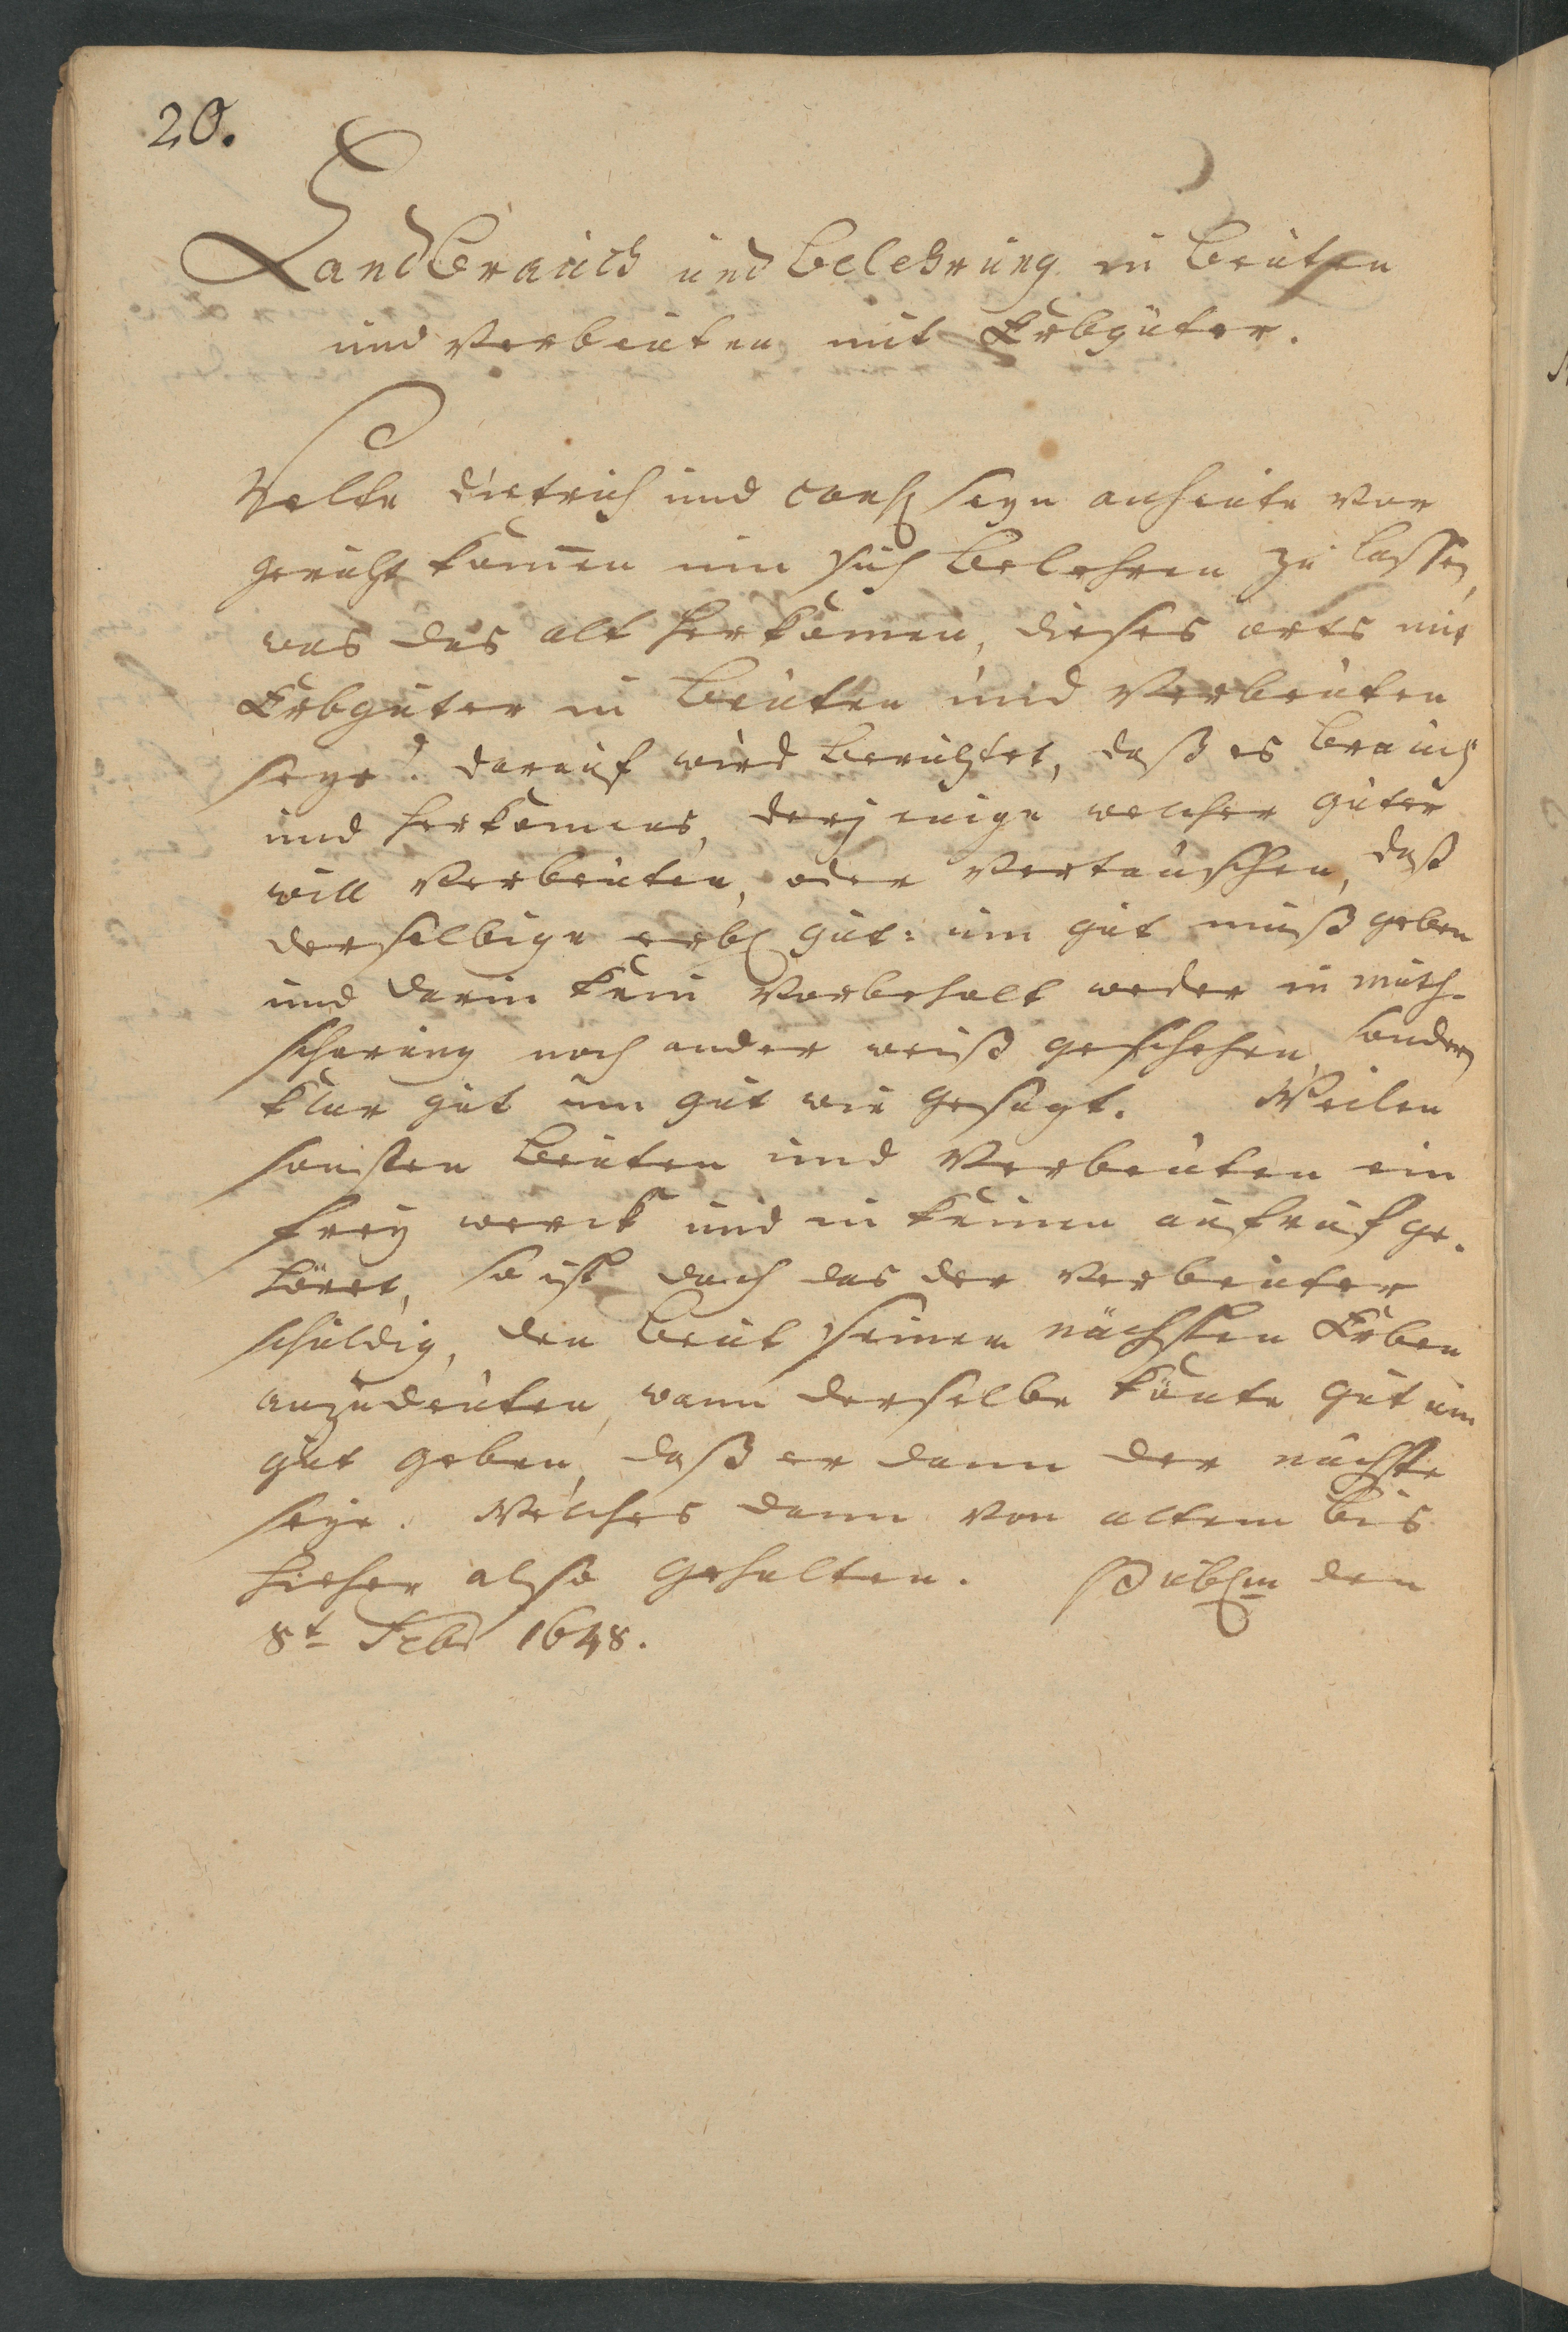 20.
Landbrauch und Belehrung in Beuten
und Verbeuten mit Erbgüter.
Velte Dietrich und cons seyn anheute vor
gericht kom̄en um sich Belehren zu lassen,
was das alt herkomen, dieses orts mit
Erbgüter in Beuten und Verbeuten
seye? darauf wird Berichtet, daß es Brauch
und herkomens, derjenige welcher güter
will Verbeuten, oder Vertauschen, daß
derselbige erb gut: um gut muß geben
und darin kein Vorbehalt weder in muth-
scharung noch ander weiß geschehen, sondern
klar gut um gut wie gesagt. Weilen
sonsten Beuten und Verbeuten ein
frey werck und in keinen aufruf ge-
höret, so ist doch das der Verbeuter
schuldig, den Beut seinen nächsten Erben
anzudeuten, wann derselbe könte gut um
gut geben, daß er dann der nächste
seye. Welches dann von altem bis
hieher also gehalten. Publm den
8t Febr 1648.